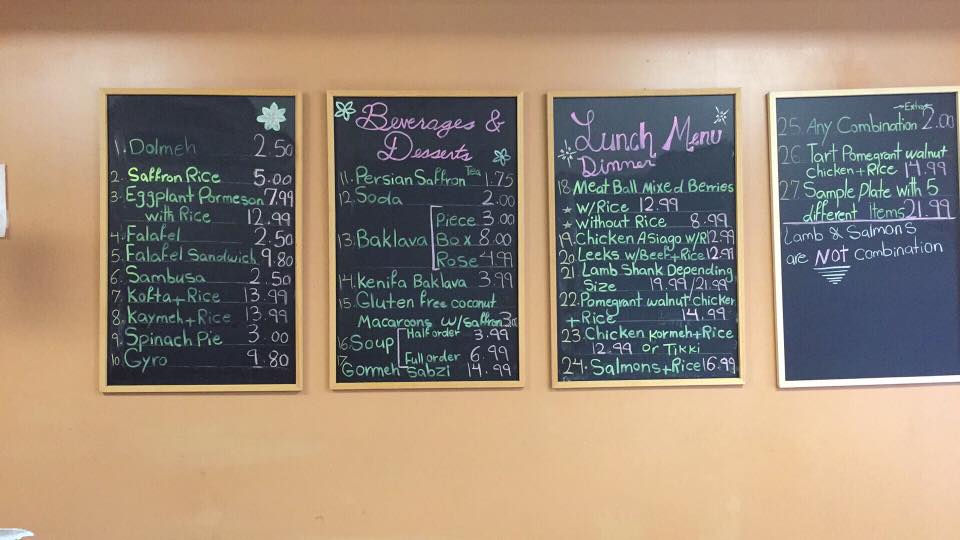 1. Dolmeh 2.50
2. Saffron Rice 5.00
3. Eggplant Parmeson 7.99
with Rice 12.99
4. Falafel 2.50
5. Falafel Sandwich 9.80
6. Sambusa 2.50
7. Kofta + Rice 13.99
8. Kaymeh + Rice 13.99
9. Spinach Pie 3.00
10. Gyro 9.80
Beverages &
Desserts
11. Persian Saffron Tea 1.75
12. Soda 2.00
Piece 3.00
13. Baklava Box 8.00
Rose 4.99
14. Kenifa Baklava 3.99
15. Gluten free coconut
Macaroons w/saffron 3.00
16. Soup Half order 3.99
Full order 6.99
17. Gormeh Sabzi 14.99
Lunch Menu
Dinner
18 Meat Ball Mixed Berries
w/Rice 12.99
without Rice 8.99
19. Chicken Asiago w/R 12.99
20. Leeks w/Beef + Rice 12.99
21. Lamb Shank Depending
Size 19.99/21.99
22. Pomegrant walnut chicken
+ Rice 14.99
23. Chicken kormeh + Rice
12.99 or Tikki
24. Salmons + Rice 16.99
Extras
25. Any Combination 2.00
26. Tart Pomegrant walnut
chicken + Rice 14.99
27. Sample Plate with 5
different Items 21.99
Lamb & Salmons
are NOT Combination